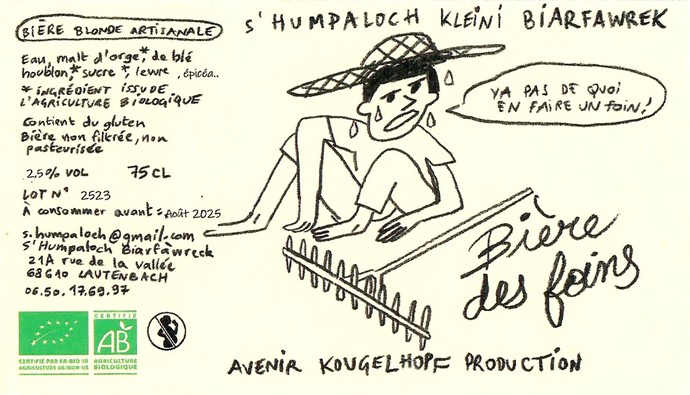 BIÈRE BLONDE ARTISANALE
Eau, malt d'orge,* de blé
houblon,* sucre *, levure, épicéa..
* INGRÉDIENT ISSU DE
L'AGRICULTURE BIOLOGIQUE
Contient du gluten
Bière non filtrée, non
pasteurisée
2,50% VOL 75 CL
LOT N° 2523
À consommer avant : Août 2025
s.humpaloch@gmail.com
S'Humpaloch Biarfàwreck
21A rue de la vallée
68610 LAUTENBACH
06.50.17.69.97
CERTIFIÉ PAR FR-BIO 10
AGRICULTURE UE/NON-UE
CERTIFIÉ
AB
AGRICULTURE
BIOLOGIQUE
S'HUMPALOCH KLEINI BIARFAWREK
YA PAS DE QUOI
EN FAIRE UN FOIN!
Bière
des foins
AVENIR KOUGELHOPF PRODUCTION